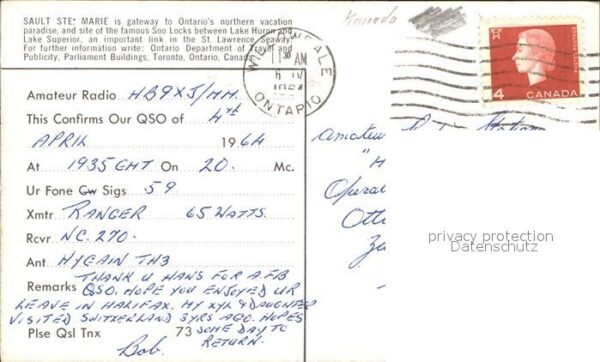 SAULT STE. MARIE is gateway to Ontario's northern vacation
paradise, and site of the famous Soo Locks between Lake Huron and
Lake Superior, an important link in the St. Lawrence Seaway.
For further information write: Ontario Department of Travel and
Publicity, Parliament Buildings, Toronto, Ontario, Canada.
Kanada
WILLOWDALE
30 AM
ONTARIO
4 CANADA
Amateur Radio HB9XJ/MM.
This Confirms Our QSO of 4th
APRIL 1964
At 1935 GMT On 20 Mc.
Ur Fone Cw Sigs 59
Xmtr RANGER 65 WATTS.
Rcvr NC.270.
Ant HYGAIN TH3
THANK U HANS FOR A FB
Remarks QSO. HOPE YOU ENJOYED UR
LEAVE IN HALIFAX. MY XYL & DAUGHTER
VISITED SWITZERLAND 3YRS AGO. HOPES
Plse Qsl Tnx 73 SOME DAY TO
RETURN.
Bob.
Amateu
"H
Operat
Ott
privacy protection
Datenschutz